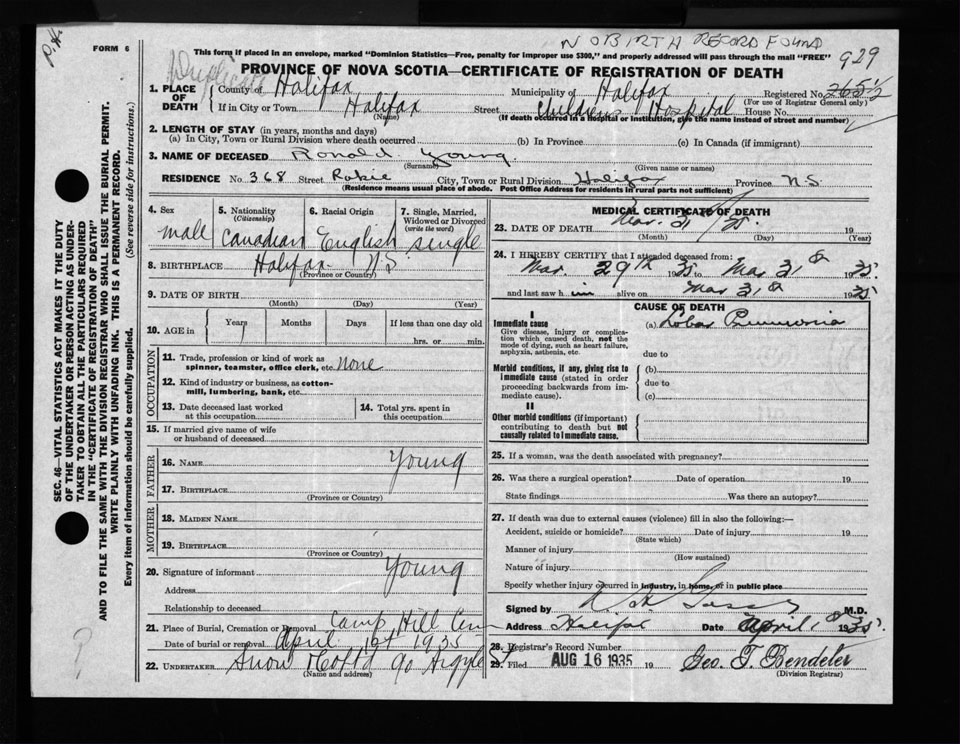 NO BIRTH RECORD FOUND
FORM 6
This form if placed in an envelope, marked "Dominion Statistics—Free, penalty for improper use $300," and properly addressed will pass through the mail "FREE"
929
Duplicate
PROVINCE OF NOVA SCOTIA—CERTIFICATE OF REGISTRATION OF DEATH
1. PLACE OF DEATH
County of Halifax Municipality of Halifax Registered No. 265½
(For use of Registrar General only)
If in City or Town Halifax Street Children's Hospital House No.
(Name) (If death occurred in a hospital or institution, give the name instead of street and number)
2. LENGTH OF STAY (in years, months and days)
(a) In City, Town or Rural Division where death occurred (b) In Province (c) In Canada (if immigrant)
3. NAME OF DECEASED Ronald Young
(Surname) (Given name or names)
RESIDENCE No. 368 Street City, Town or Rural Division Halifax Province N.S.
(Residence means usual place of abode. Post Office Address for residents in rural parts not sufficient)
4. Sex male
5. Nationality (Citizenship) Canadian
6. Racial Origin English
7. Single, Married, Widowed or Divorced (write the word) single
8. BIRTHPLACE Halifax N.S.
(Province or Country)
9. DATE OF BIRTH
(Month) (Day) (Year)
10. AGE in Years Months Days If less than one day old
hrs. or min.
OCCUPATION
11. Trade, profession or kind of work as spinner, teamster, office clerk, etc. None
12. Kind of industry or business, as cotton-mill, lumbering, bank, etc.
13. Date deceased last worked at this occupation
14. Total yrs. spent in this occupation
15. If married give name of wife or husband of deceased
FATHER
16. NAME Young
17. BIRTHPLACE
(Province or Country)
MOTHER
18. MAIDEN NAME
19. BIRTHPLACE
(Province or Country)
20. Signature of informant Young
Address
Relationship to deceased
21. Place of Burial, Cremation or Removal Camp Hill Cem
Date of burial or removal April 1st 1935
22. UNDERTAKER Snow 90 Argyle St
(Name and address)
MEDICAL CERTIFICATE OF DEATH
23. DATE OF DEATH Mar 31/35 19
(Month) (Day) (Year)
24. I HEREBY CERTIFY that I attended deceased from:
Mar 29th 1935 to Mar 31st 1935
and last saw h im alive on Mar 31st 1935
CAUSE OF DEATH
I
Immediate cause
Give disease, injury or complication which caused death, not the mode of dying, such as heart failure, asphyxia, asthenia, etc.
(a) Lobar Pneumonia
due to
Morbid conditions, if any, giving rise to immediate cause (stated in order proceeding backwards from immediate cause).
(b)
due to
(c)
II
Other morbid conditions (if important) contributing to death but not causally related to immediate cause.
25. If a woman, was the death associated with pregnancy?
26. Was there a surgical operation? Date of operation 19
State findings Was there an autopsy?
27. If death was due to external causes (violence) fill in also the following:—
Accident, suicide or homicide? Date of injury 19
(State which)
Manner of injury
(How sustained)
Nature of injury
Specify whether injury occurred in industry, in home, or in public place
Signed by M.D.
Address Halifax Date April 1st 1935
28. Registrar's Record Number
29. Filed AUG 16 1935 19 Geo. T. Bendeler
(Division Registrar)
SEC. 46—VITAL STATISTICS ACT MAKES IT THE DUTY
OF THE UNDERTAKER OR PERSON ACTING AS UNDER-
TAKER TO OBTAIN ALL THE PARTICULARS REQUIRED
IN THE "CERTIFICATE OF REGISTRATION OF DEATH"
AND TO FILE THE SAME WITH THE DIVISION REGISTRAR WHO SHALL ISSUE THE BURIAL PERMIT.
WRITE PLAINLY WITH UNFADING INK. THIS IS A PERMANENT RECORD.
Every item of information should be carefully supplied. (See reverse side for instructions.)